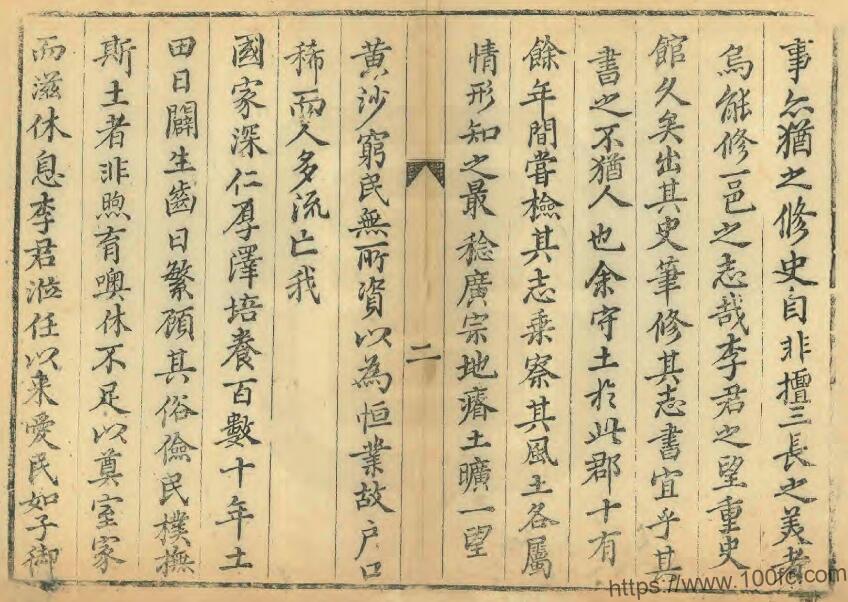 事亦猶之修史自非擅三長之美者
烏能修一邑之志哉李君之望重史
館久矣出其史筆修其志書宜乎其
書之不猶人也余守土於此郡十有
餘年間嘗檢其志乘察其風土各屬
情形知之最稔廣宗地瘠土曠一望
二
黄沙窮民無所資以為恒業故户口
稀而人多流亡我
國家深仁厚澤培養百數十年土
田日闢生齒日繁顧其俗儉民樸撫
斯土者非煦育噢休不足以奠室家
而滋休息李君涖任以来愛民如子御
https://www.100fc.com